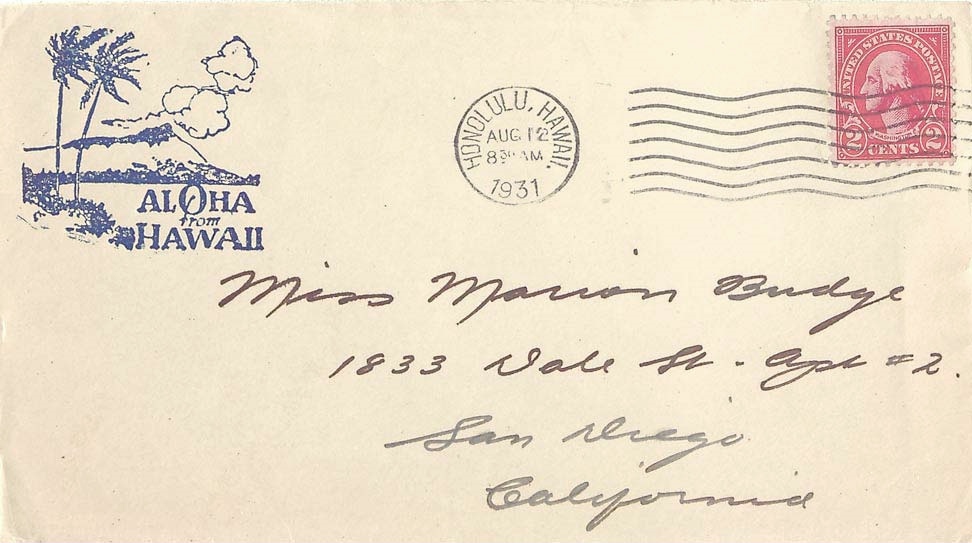 ALOHA
from
HAWAII
HONOLULU, HAWAII.
AUG 12
8 30 AM
1931
UNITED STATES POSTAGE
WASHINGTON
2 CENTS 2
Miss Marion Budge
1833 Dale St - Apt #2.
San Diego
California